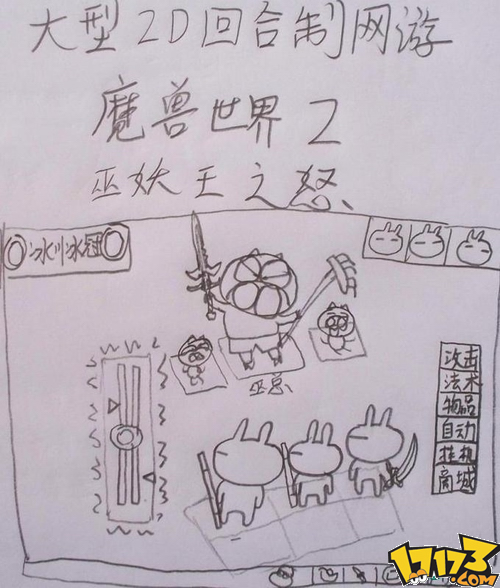 大型2D回合制网游
魔兽世界2
巫妖王之怒
冰川冰冠
巫总
攻击
法术
物品
自动
挂机
商城
17173
.com